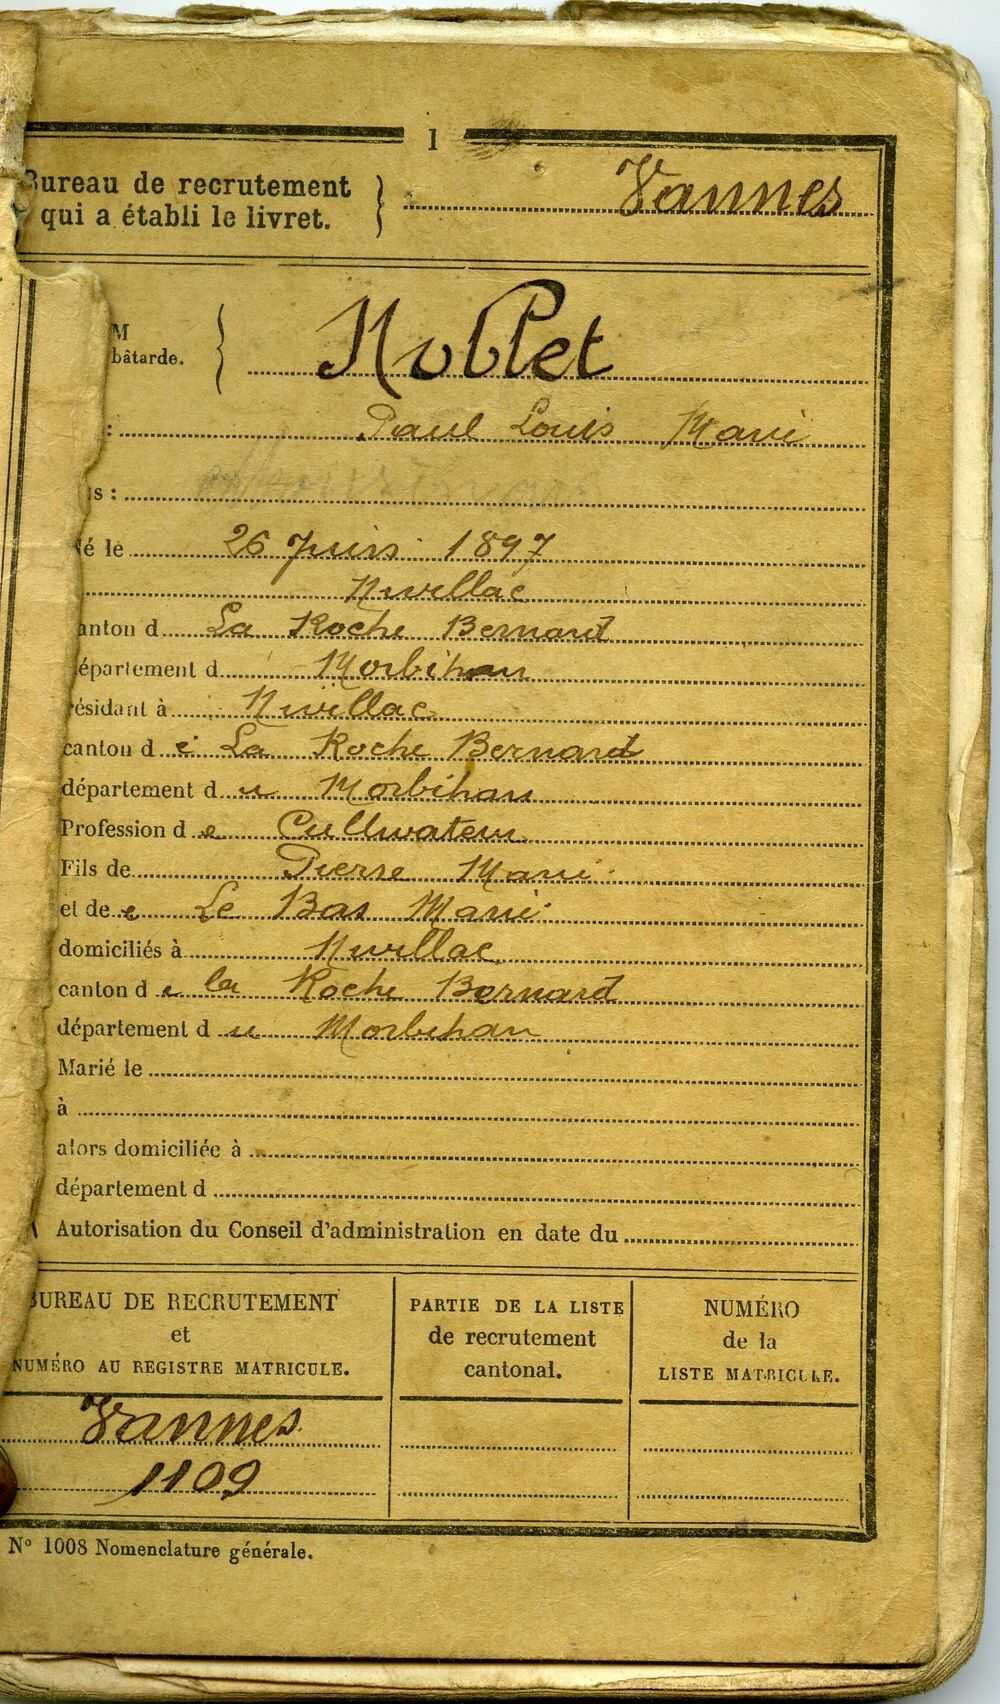 1
Bureau de recrutement
qui a établi le livret.
Vannes
M
bâtarde.
Noblet
: Paul Louis Marie
s :
é le 26 Juin 1897
Nivillac
anton d La Roche Bernard
épartement d Morbihan
résidant à Nivillac
canton de La Roche Bernard
département du Morbihan
Profession de Cultivateur
Fils de Pierre Marie
et de Le Bas Marie
domiciliés à Nivillac
canton de la Roche Bernard
département du Morbihan
Marié le
à
alors domiciliée à
département d
Autorisation du Conseil d'administration en date du
BUREAU DE RECRUTEMENT
et
NUMÉRO AU REGISTRE MATRICULE.
PARTIE DE LA LISTE
de recrutement
cantonal.
NUMÉRO
de la
LISTE MATRICULE.
Vannes
1109
N° 1008 Nomenclature générale.